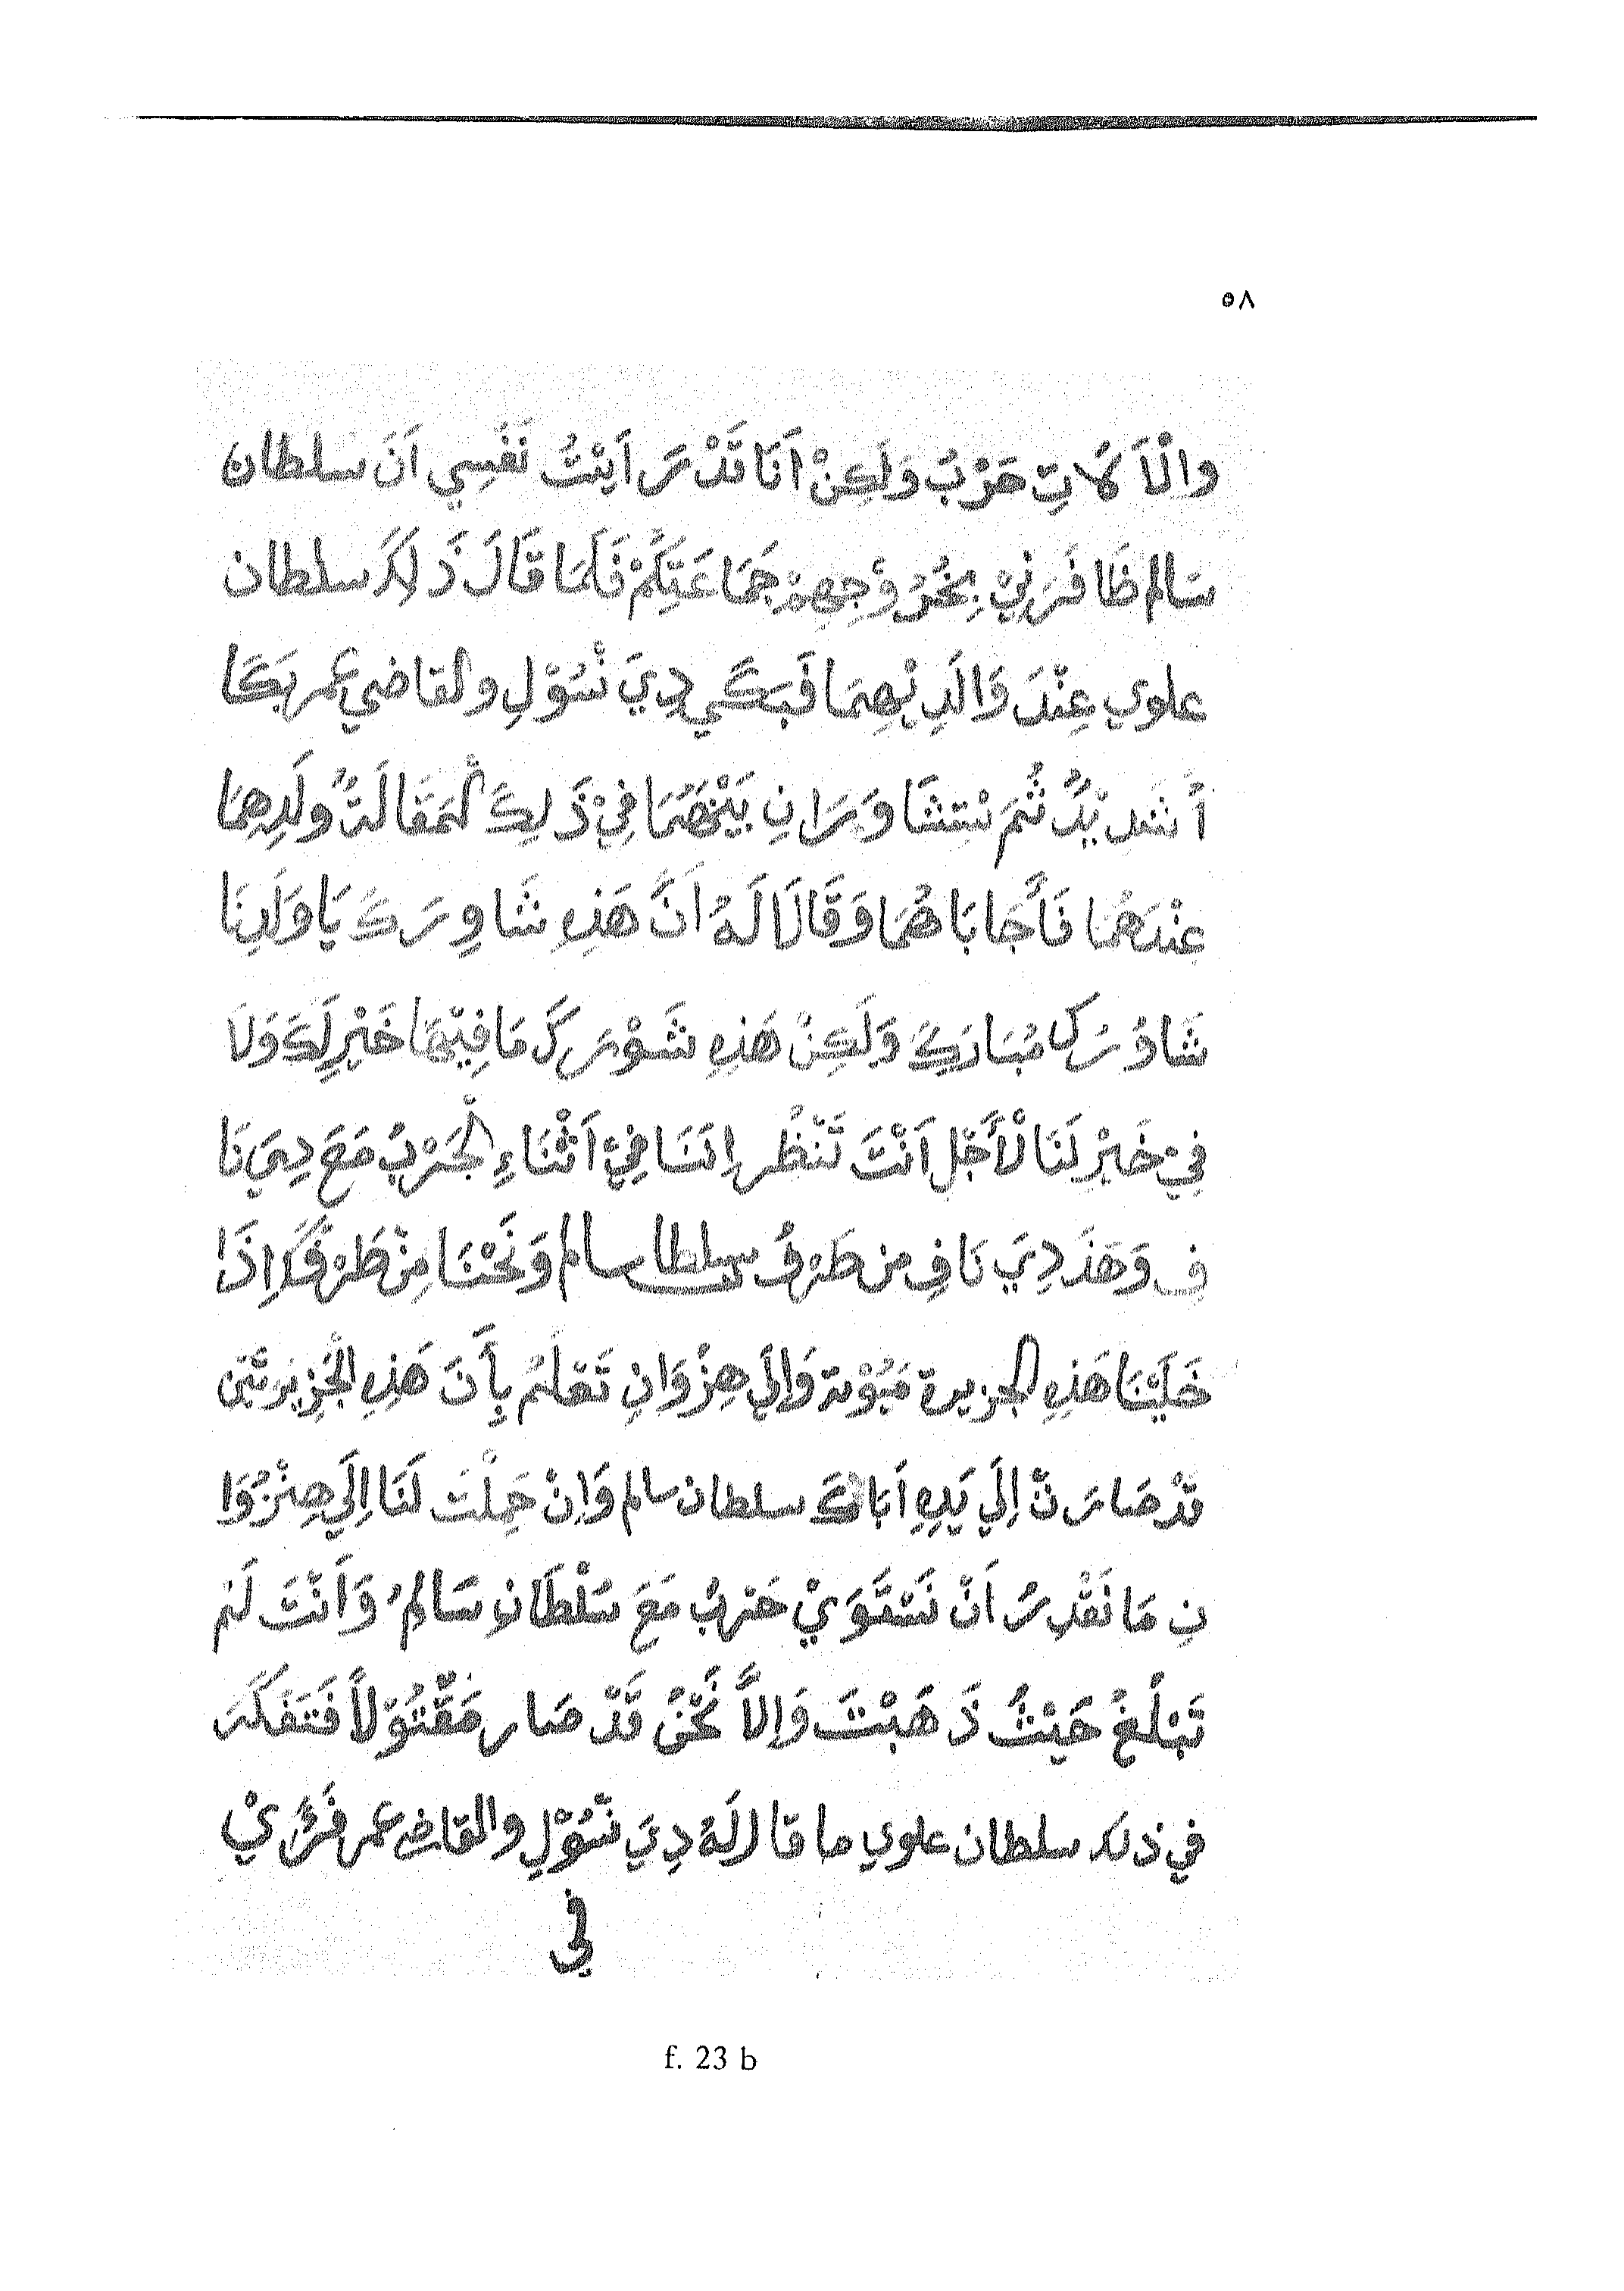 ٥٨
والْأَلَاتِ حَرْبُ وَلَكِنْ أَنَا قَدْ رَأَيْتُ نَفْسِي اَنَ سلطان
سَالم ظَافَرَنِيْ بِخُرُوْجِهِمْ جَمَاعَتِكُمْ فَلَمَا قَالَ ذَلِكَ سلطان
علوي عِنْدَ وَالَدِيْهِمَا فَبَكَي دِيَ نْسُوْلِ والقاضي عمر بَكَا
أشَدِيْدُ ثُمَ نْتِشَاوَرَانِ بَيْنَهُمَا فِيْ ذَلِكَ لْمَقَالَةُ وَلَدِهِمَا
عِنْدَهُمَا فَأَجَابَاهُمَا وَقَالَا لَهُ اَنَّ هَذِهِ شَاوِرَكَ يَا وَلَدِنَا
شَاوُرَكَ مُبَارَكَ وَلَكِنْ هَذِهِ شَوْرَكَ مَا فِيْهَا خَيْرِ لَكَ وَلَا
فِيْ خَيْرِ لَنَا لْأَجْلِ اَنْتَ تَنْظُر اِنَنَا فِيْ اَثْنَاءِ لْحَرْبُ مَعَ دِيَ نَا
فِ وَهَذَ دِيَ نَافِ من طَرْفُ سلطا سالم وَنَحْنَا مِنْ طَرْفَكَ اِذَا
خَلَيْنَا هَذِهِ الجزيرة مَيُوْتة وَاِلَي هِزْوَانِ تَعْلَمُ بِأَنَ هَذِهِ الْجَزِيْرَتَيْن
قَدْ صَارَتْ اِلَي يَدِهِ اَبَاكَ سلطان سالم وَاِنْ حَمِلْتَ لَنَا اِلَي هِنْزُوَا
نِ مَا نَقْدِرُ اَنْ نَسْتَوَيْ حَرْبُ مَعَ سُلْطَانِ سَالِمُ وَاَنْتَ لَمْ
تَبْلُغُ حَيْثُ ذَهَبْتَ وَاِلَّا نَحْنُ قَدْ صَار مَقْتُوْلاً فَتَفَكَرَ
في ذلك سلطان علوي ما قا لَهُ دِيَ نْسُوْلِ والقاض عمر فَرَايْ
في
f. 23 b